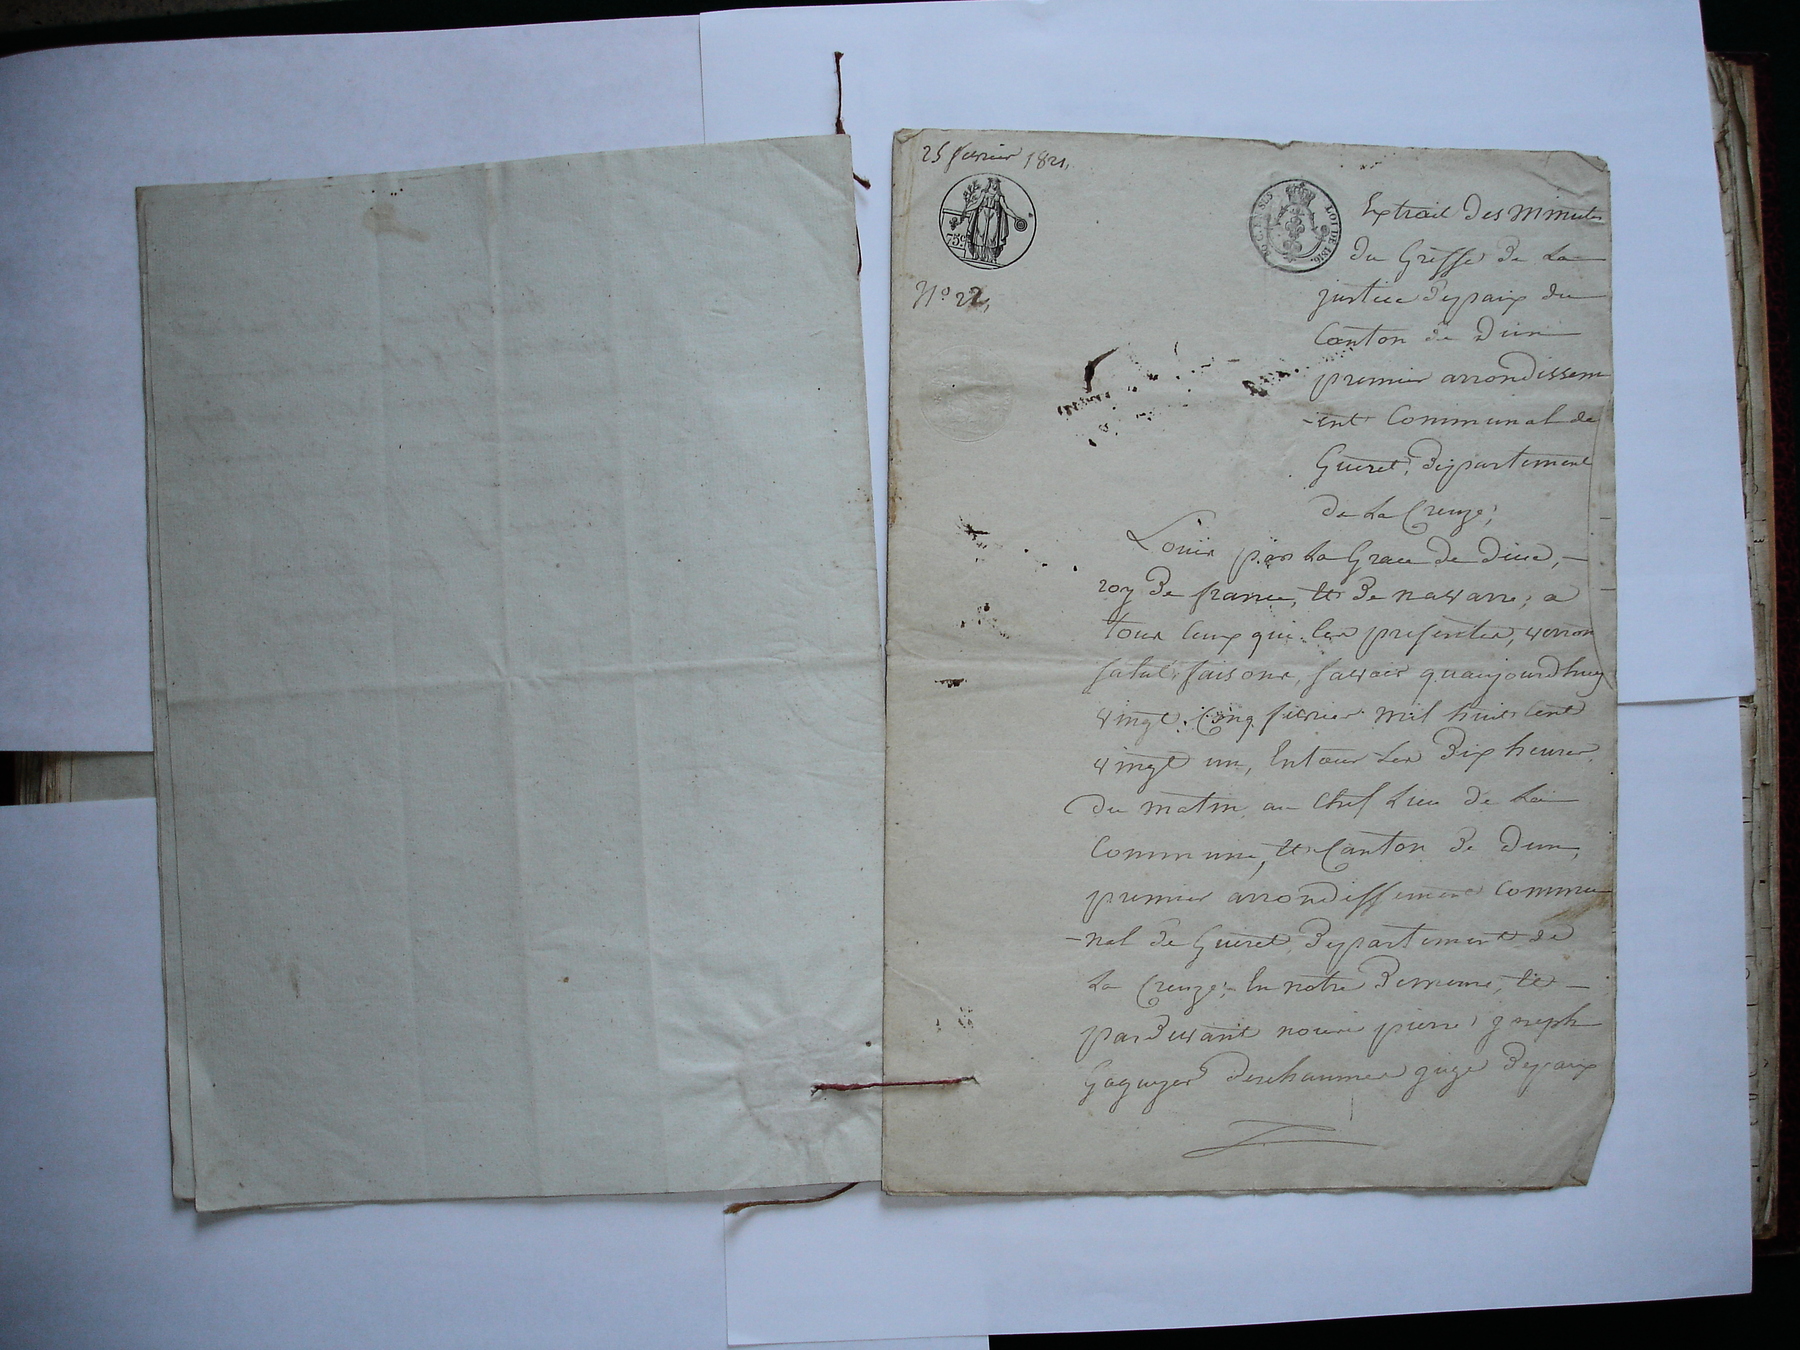 25 fevrier 1821,
75c
LOI DE 1816.
No 22,
Extrait des Minutes
du Greffe de La
justice depaix du
Canton de Dun
premier arrondissem
-ent Communal de
Gueret, Departement
de La Creuze;
Louis par La Grace de dieu,
roy De france, et De navarre; a
tous ceux qui les presentes, verron
salut, faisons, savoir quaujourdhuy
vingt cinq fevrier mil huit cent
vingt un, Entour Les Dix heures
Du matin au chef Lieu de La
Commune, et Canton De Dun,
premier arrondissement Commu
-nal de Gueret Departement de
La Creuze; En notre Demeure, et
pardevant nous pierre joseph
juge Depaix